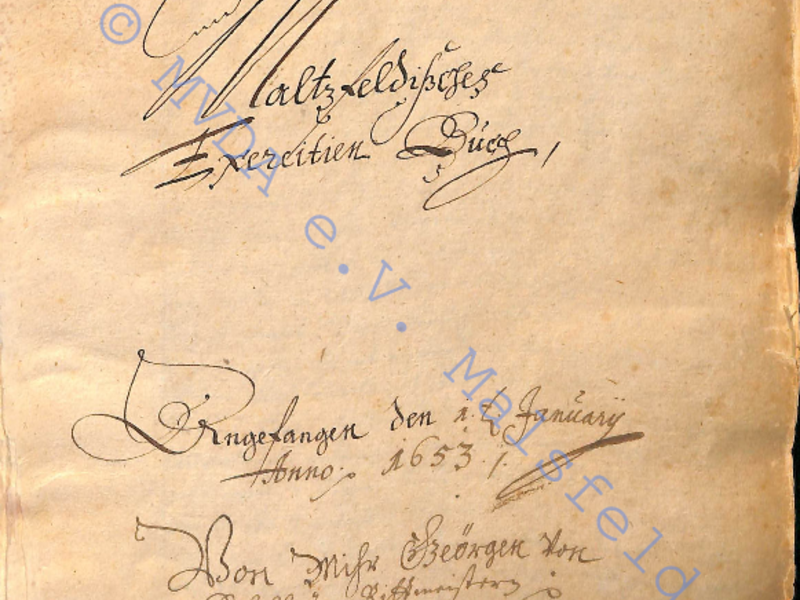 Maltzfeldisches
Exercitien Buch,
Angefangen den 1. January
Anno. 1653.
Von Mihr Geörgen Von
© MVDA e.V. Malsfeld